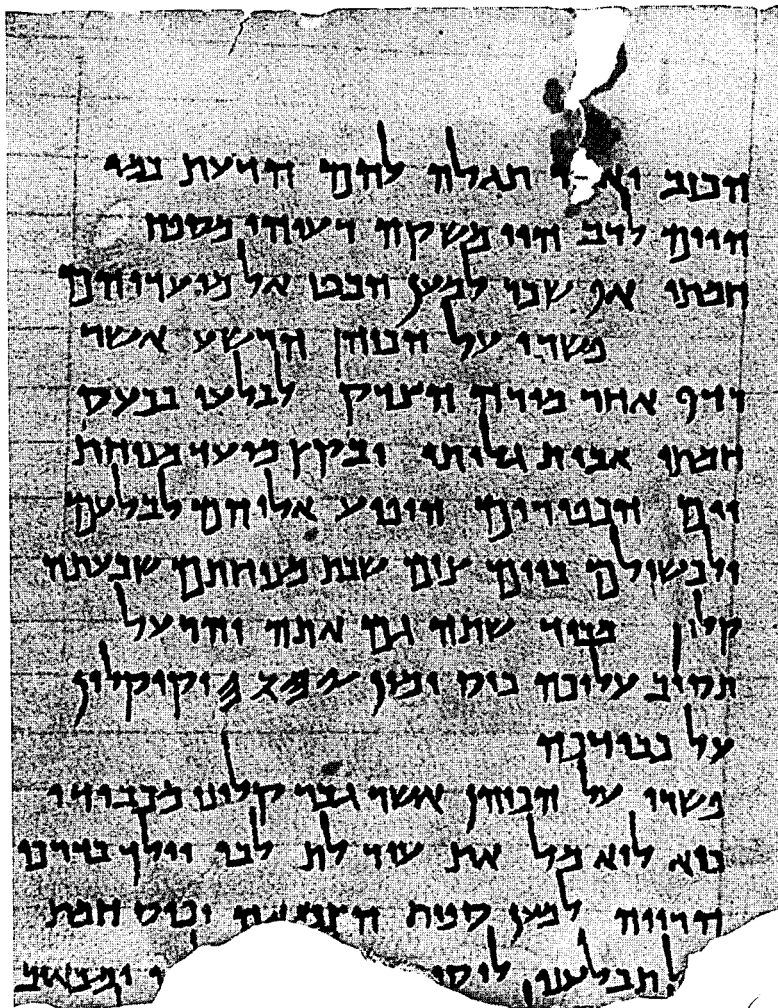 הכזב ואחר תגלה להם הדעת כמי
היים לרב הוי משקה רעיהו מספח
חמתו אף שכר למען הבט אל מועדיהם
פשרו על הכוהן הרשע אשר
רדף אחר מורה הצדק לבלעו בכעס
חמתו אבית גלותו ובקץ מועד מנוחת
יום הכפורים הופיע אליהם לבלעם
ולכשילם ביום צום שבת מנוחתם שבעתה
קלון מכבוד שתה גם אתה והרעל
תסוב עליכה כוס ימין 𐤉𐤄𐤅𐤄 וקיקלון
על כבודכה
פשרו על הכוהן אשר גבר קלונו מכבודו
כיא לוא מל את עורלת לבו וילך בדרכי
הרויה למען ספות הצמאה וכוס חמת
ל תבלענו ומכאוב